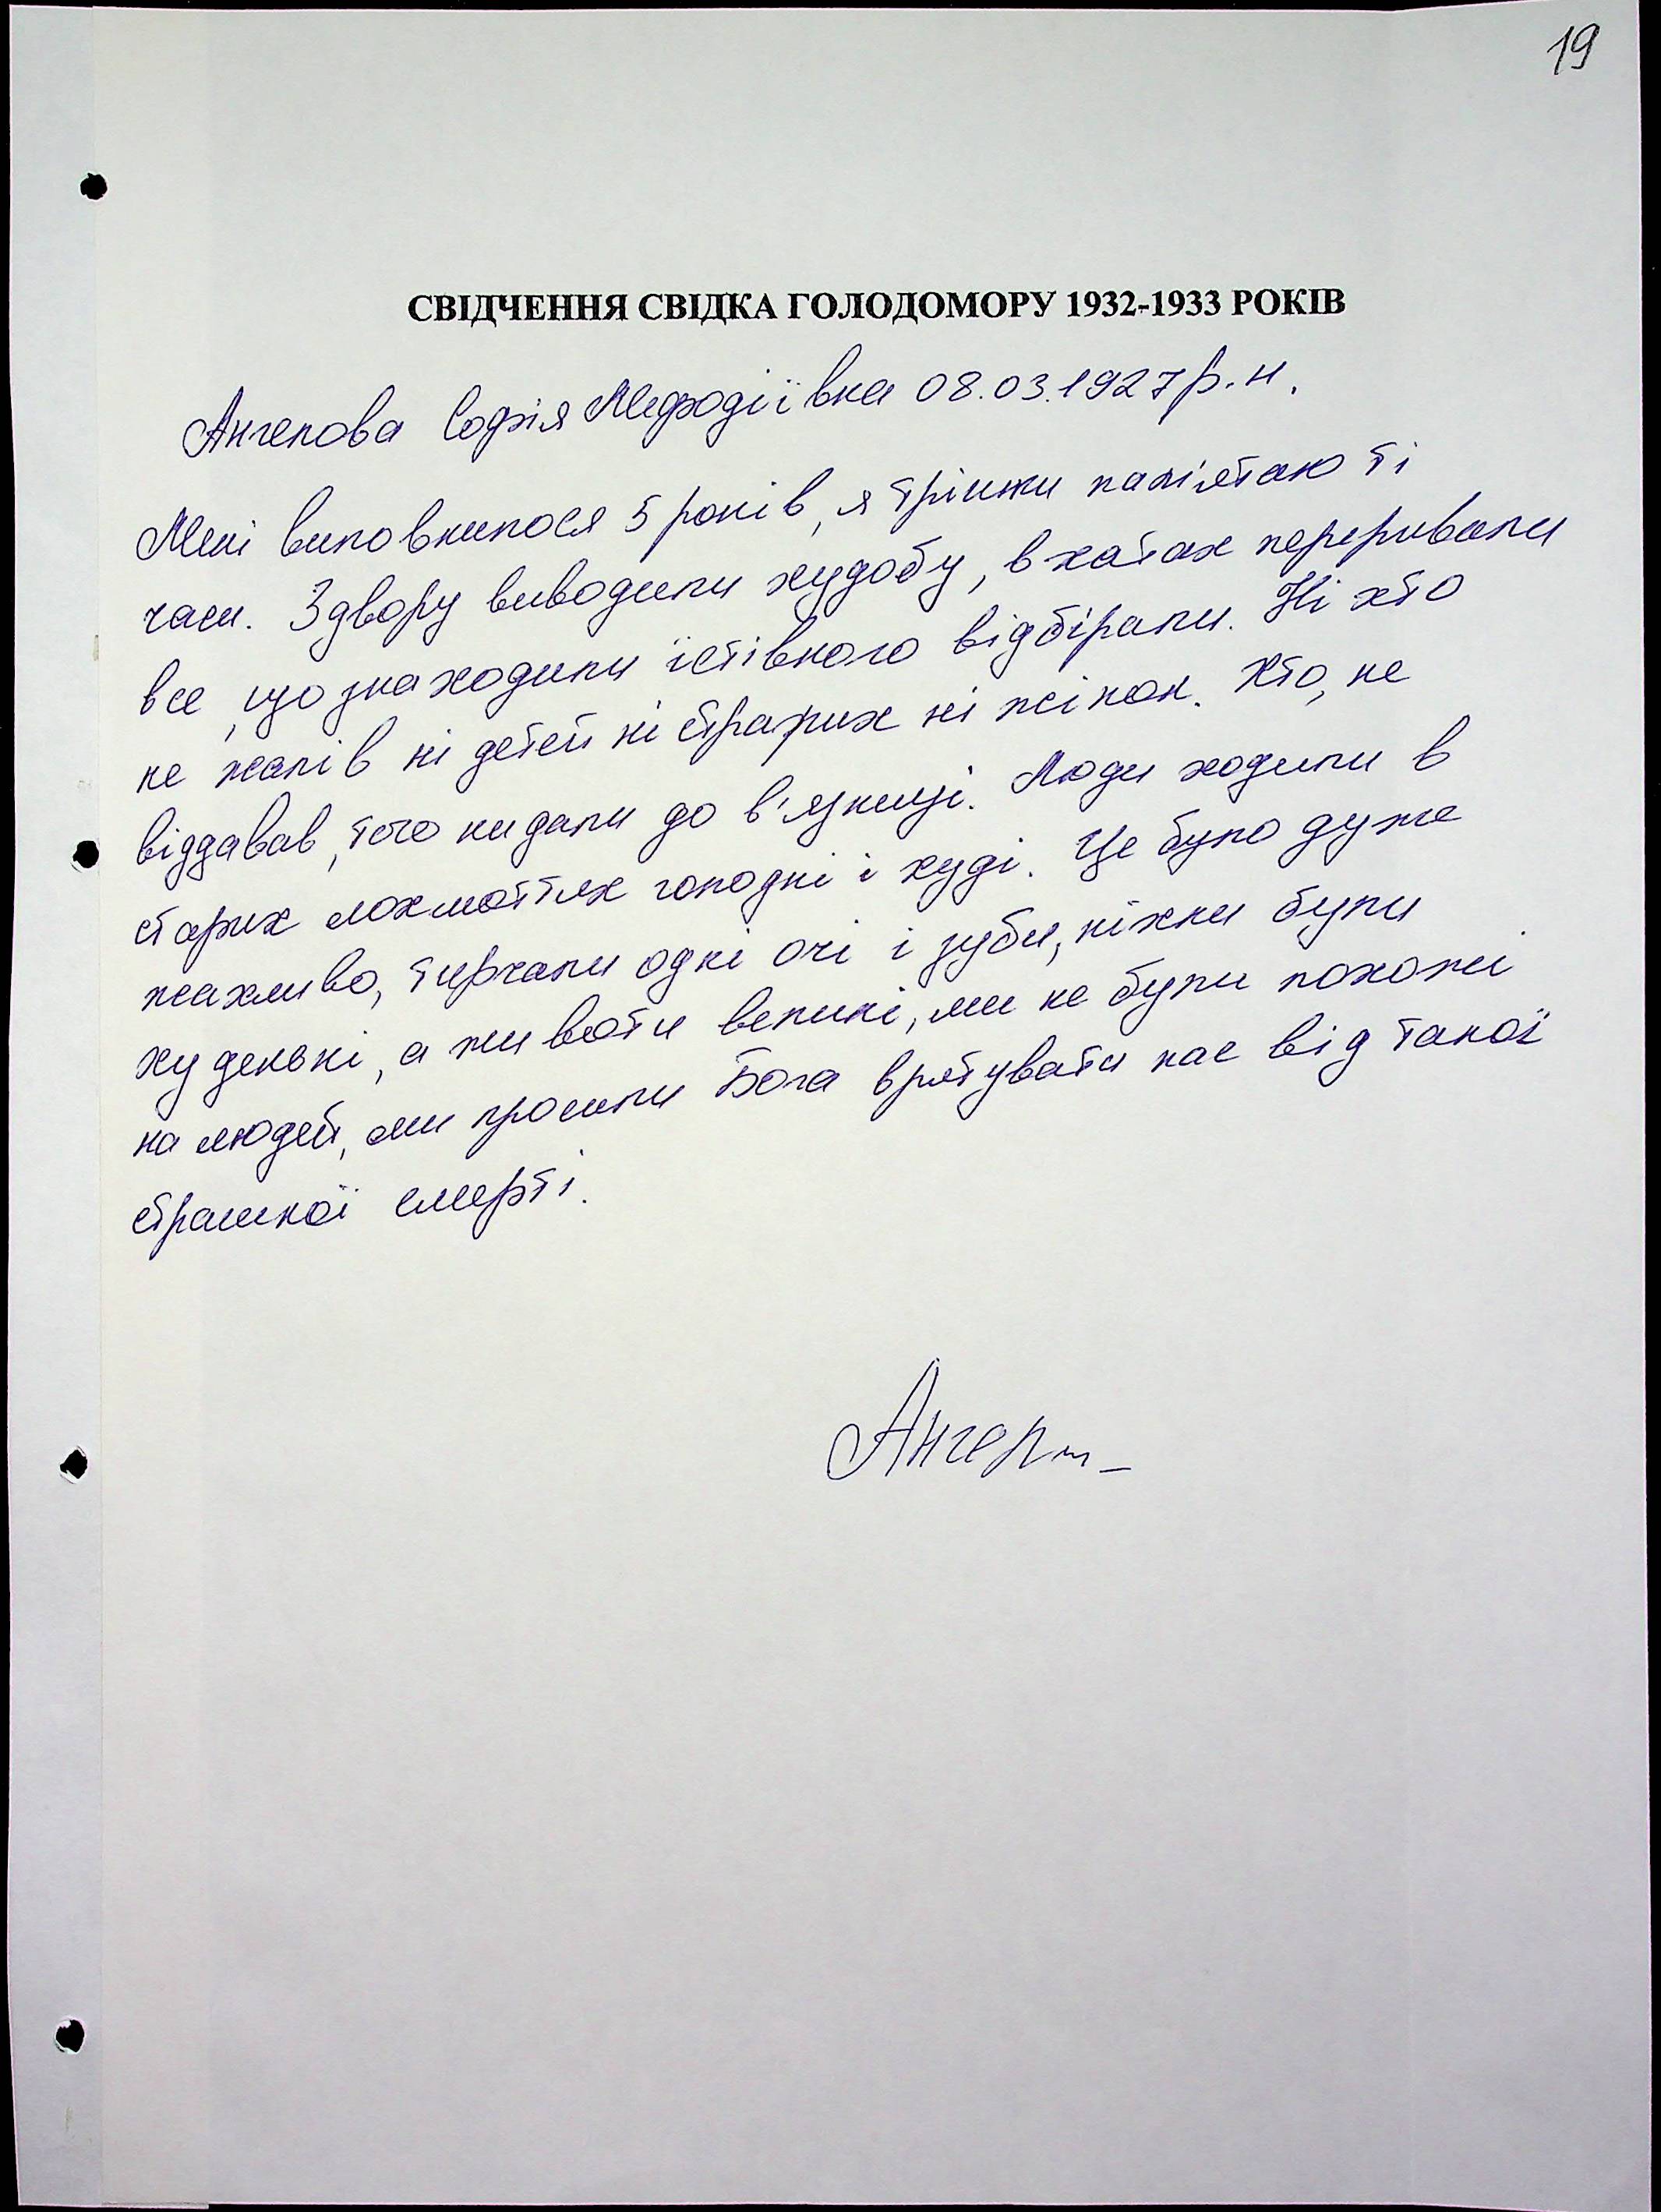 19
СВІДЧЕННЯ СВІДКА ГОЛОДОМОРУ 1932-1933 РОКІВ
Ангелова Софія Мефодіївна 08.03.1927 р.н.
Мені виповнилося 5 років, я трішки пам'ятаю ті
часи. З двору виводили худобу, в хатах переривали
все, що знаходили їстівного відбірали. Ні хто
не жалів ні детей ні старих ні жінок. Хто, не
віддавав, того кидали до в'язниці. Люди ходили в
старих лохмоттях голодні і худі. Це було дуже
жахливо, тирчали одні очі і зуби, ніжки були
худенькі, а животи великі, ми не були похожі
на людей, ми просили Бога врятувати нас від такої
страшної смерті.